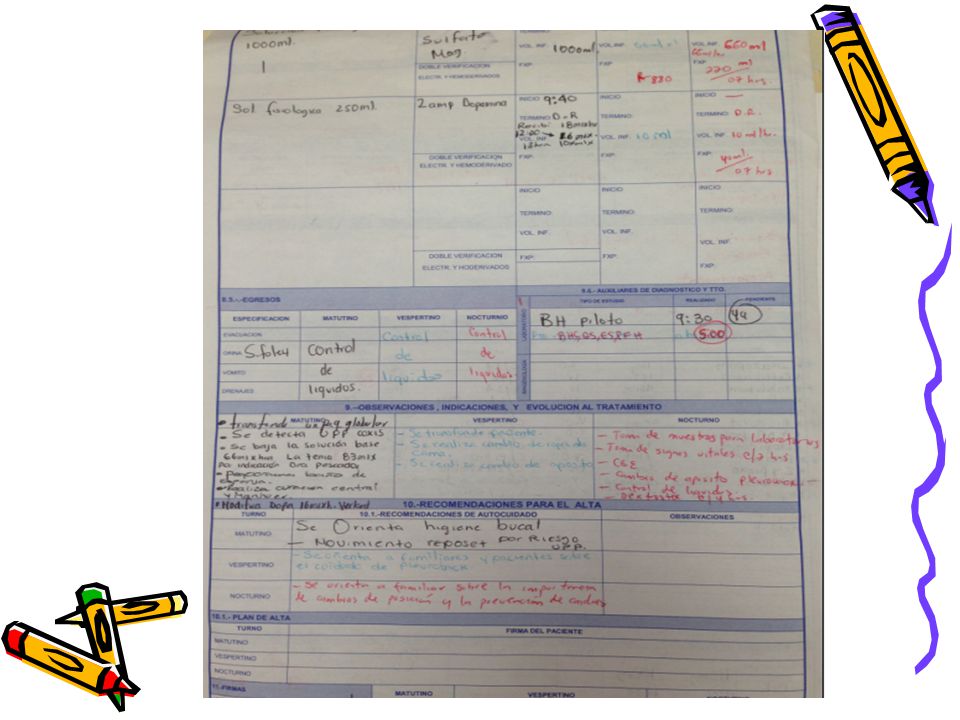 1000ml.
1
Sulfato
Mag
DOBLE VERIFICACION
ELECTR. Y HEMODERIVADOS
TERMINO:
VOL. INF. 1000ml
FXP:
VOL. INF.
FXP
R-830
VOL. INF. 660ml
FXP 220 ml
07 hrs.
Sol fisiologica 250ml.
2 amp Dopamina
DOBLE VERIFICACION
ELECTR. Y HEMODERIVADO
INICIO 9:40
TERMINO D-R
Recibi 18mlxhr
12:00
VOL. INF.
FXP:
INICIO:
TERMINO:
VOL. INF. 10 ml
FXP:
INICIO: —
TERMINO: D.R.
VOL. INF. 10 ml/hr.
FXP: 40ml.
07 hrs
INICIO
TERMINO:
VOL. INF.
FXP:
INICIO
TERMINO:
VOL. INF.
FXP:
INICIO
TERMINO:
VOL. INF.
FXP:
DOBLE VERIFICACION
ELECTR. Y HODERIVADOS
8.5.-.-EGRESOS
ESPECIFICACION MATUTINO VESPERTINO NOCTURNO
EVACUACION Control Control
ORINA S.foley Control de de
VOMITO de liquidos liquidos
DRENAJES liquidos.
9.6.- AUXILIARES DE DIAGNOSTICO Y TTO.
TIPO DE ESTUDIO REALIZADO PENDIENTE
LABORATORIO
BH piloto 9:30 ya
BHS, QS, ES, PFH 5:00
IMAGENOLOGIA
9.--OBSERVACIONES , INDICACIONES, Y EVOLUCION AL TRATAMIENTO
MATUTINO VESPERTINO NOCTURNO
• transfunde un paq globular
- Se detecta UPP coxis
- Se baja la solución base
66mlxhra La tenia 83mlx
por indicación Dra
- proporcionan baño de
esponja.
• Realiza curación central
• Modifica Dopa 16mlxh. Verbal
- Se transfunde paciente.
- Se realiza cambio de ropa de
cama.
- Se realiza cambio de aposito
- Toma de muestras para laboratorios
- Toma de signos vitales c/2 hrs
- CGE
- Cambios de aposito pleurovack
- Control de liquidos
- Dextrostix c/4 hrs.
10.-RECOMENDACIONES PARA EL ALTA
TURNO 10.1.-RECOMENDACIONES DE AUTOCUIDADO OBSERVACIONES
MATUTINO
Se Orienta higiene bucal
- Movimiento reposet por Riesgo
UPP.
VESPERTINO
- Se orienta a familiares y pacientes sobre
el cuidado de Pleurovack.
NOCTURNO
- Se orienta a familiar sobre la importancia
de cambios de posición y la prevencion de caidas
10.1.- PLAN DE ALTA
TURNO FIRMA DEL PACIENTE
MATUTINO
VESPERTINO
NOCTURNO
11.-FIRMAS MATUTINO VESPERTINO